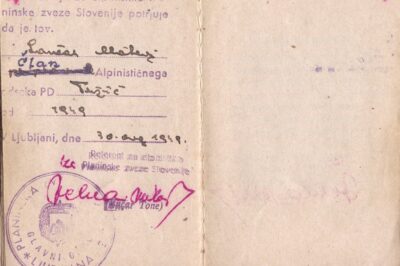 ninske zveze Slovenije potrjuje
da je tov.
Lončar Matevž
Član Alpinističnega
odseka PD Tržič
od 1949
V Ljubljani, dne 30. avg 1949.
Referent za alpinistiko
Planinske zveze Slovenije
(Bučar Tone)
PLANINSKA
GLAVNI
LJUBLJANA